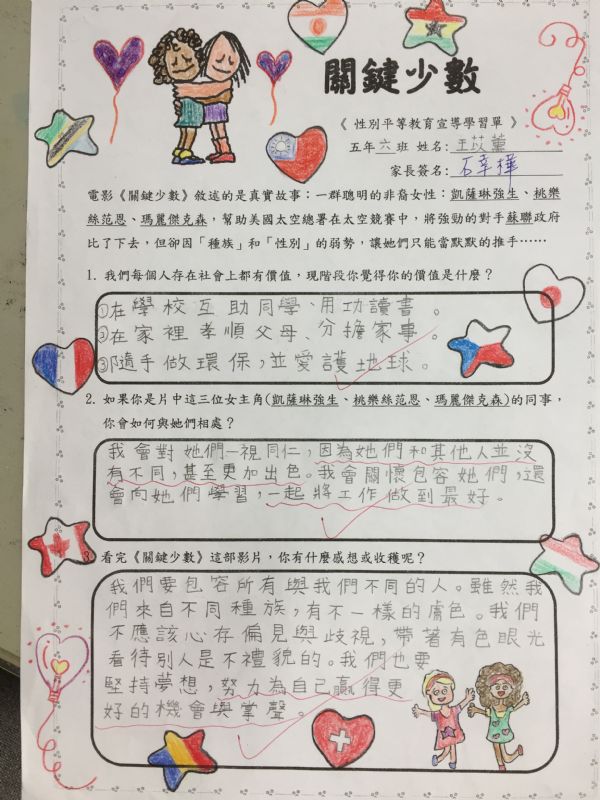 關鍵少數
《 性別平等教育宣導學習單 》
五年六班 姓名: 王苡薰
家長簽名: 石幸樺
電影《關鍵少數》敘述的是真實故事：一群聰明的非裔女性：凱薩琳強生、桃樂
絲范恩、瑪麗傑克森，幫助美國太空總署在太空競賽中，將強勁的對手蘇聯政府
比了下去，但卻因「種族」和「性別」的弱勢，讓她們只能當默默的推手⋯⋯
1. 我們每個人存在社會上都有價值，現階段你覺得你的價值是什麼？
①在學校互助同學、用功讀書。
②在家裡孝順父母、分擔家事。
③隨手做環保，並愛護地球。
2. 如果你是片中這三位女主角(凱薩琳強生、桃樂絲范恩、瑪麗傑克森)的同事，
你會如何與她們相處？
我會對她們一視同仁，因為她們和其他人並沒
有不同，甚至更加出色。我會關懷包容她們，還
會向她們學習，一起將工作做到最好。
3. 看完《關鍵少數》這部影片，你有什麼感想或收穫呢？
我們要包容所有與我們不同的人。雖然我
們來自不同種族，有不一樣的膚色。我們
不應該心存偏見與歧視，帶著有色眼光
看待別人是不禮貌的。我們也要
堅持夢想，努力為自己贏得更
好的機會與掌聲。